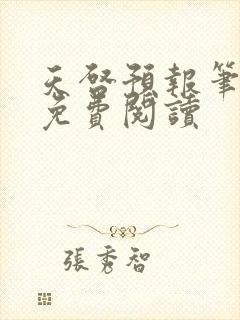 天啓預報筆
免費閱讀
張秀智